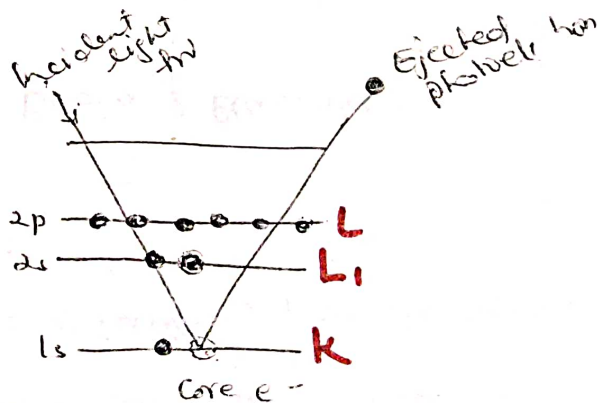 Incident
light
hν
Ejected
photoelectron
2p L
2s L1
1s K
Core e-